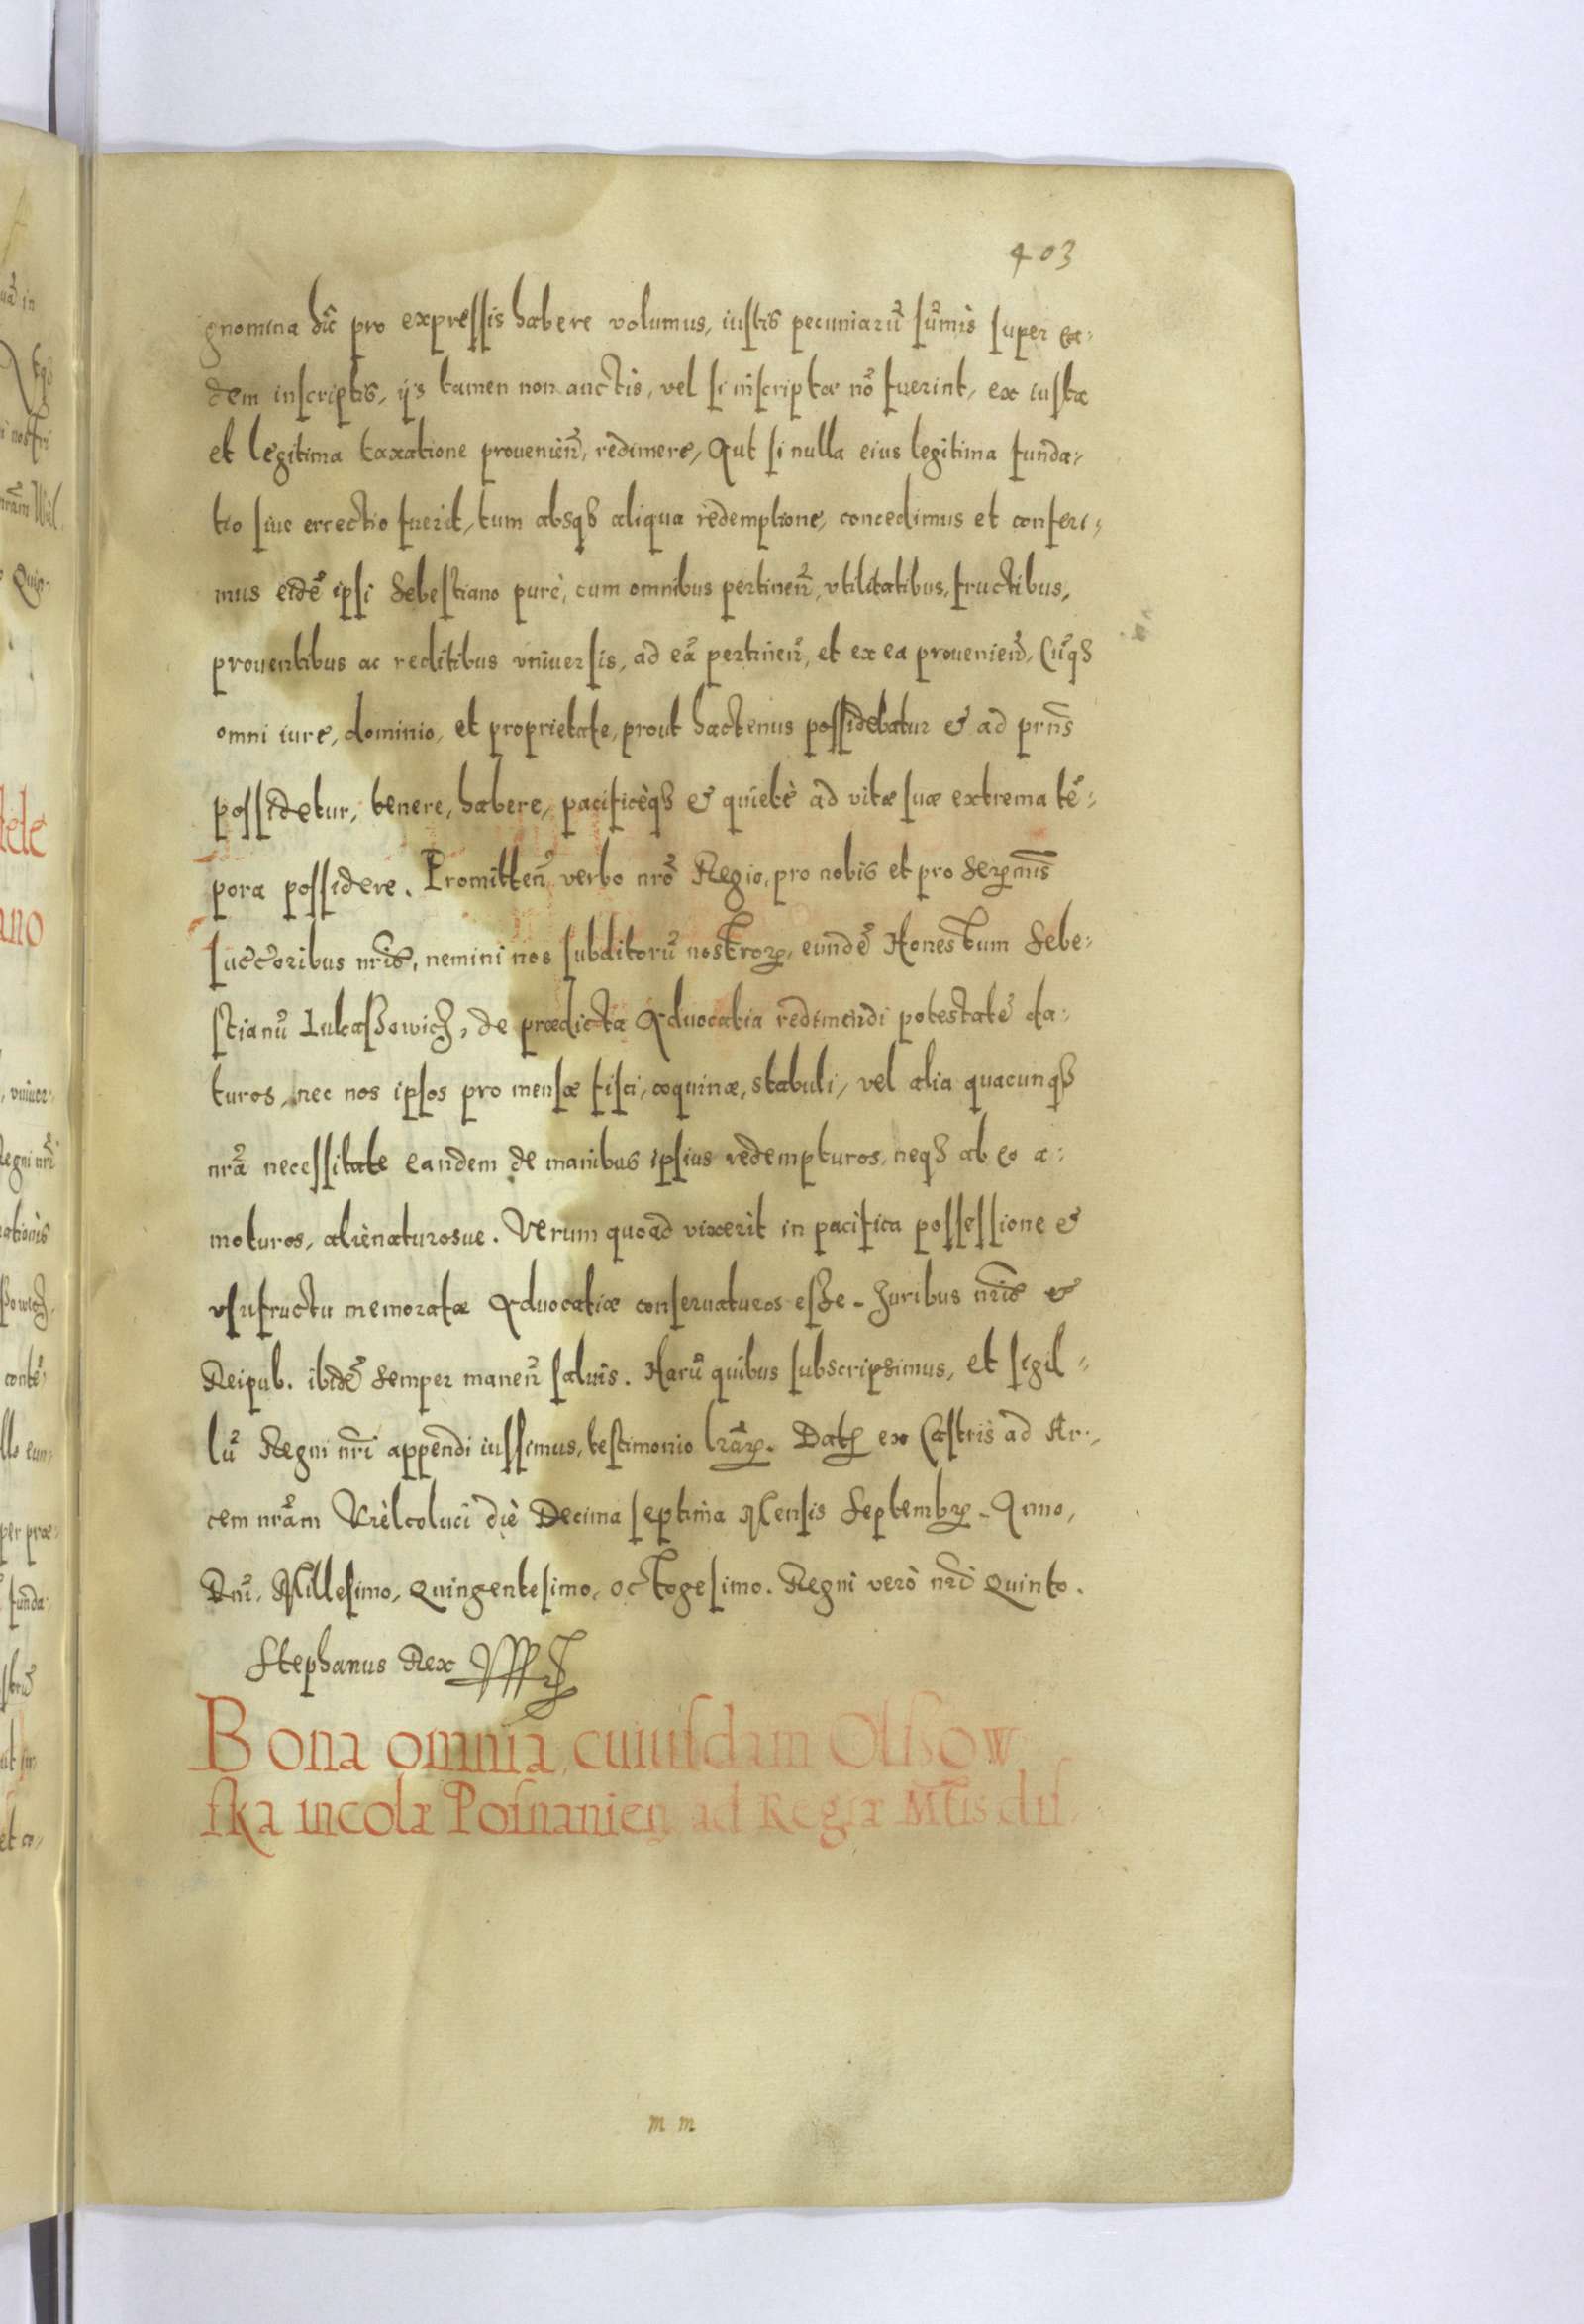 403
gnomina hîc pro expressis habere volumus, iustis pecuniarũ sũmis super ea-
dem inscriptis, ijs tamen non auctis, vel si inscriptæ nõ fuerint, ex iusta
et legitima taxatione prouenieñ, redimere, Aut si nulla eius legitima funda-
tio siue errectio fuerit, tum absqꝫ aliqua redemptione, concedimus et conferi-
mus eidẽ ipsi Sebestiano purè, cum omnibus pertineñ, vtilitatibus, fructibus,
prouentibus ac reditibus vniuersis, ad eã pertineñ, et ex ea prouenieñ, Cũqꝫ
omni iure, dominio, et proprietate, prout hactenus possidebatur & ad prñs
possidetur, tenere, habere, pacificèqꝫ & quietè ad vitæ suæ extrema tẽ-
pora possidere. Promitteñ verbo nrõ Regio, pro nobis et pro Serꝫmis
succ̃oribus nrĩs, nemini nos subditorũ nostroꝝ, eundẽ Honestum Sebe-
stianũ Lukaßowicz, de prædicta Aduocatia redimendi potestatẽ da-
turos, nec nos ipsos pro mensæ fisci, coquinæ, stabuli, vel alia quacunqꝫ
nrã necessitate eandem de manibus ipsius redempturos, neqꝫ ab eo a-
moturos, alienaturosue. Verum quoad vixerit in pacifica possessione &
vsufructu memoratæ Aduocatiæ conseruaturos esse. Juribus nrĩs &
Reipub. ibidẽ semper maneñ saluis. Harũ quibus subscripsimus, et sigil-
lũ Regni nrĩ appendi iussimus, testimonio lrãꝝ. Datꝫ ex Castris ad Ar-
cem nrãm Wielcoluci diè Decima septima Mensis Septembꝝ. Anno,
Dñi, Millesimo, Quingentesimo, octogesimo. Regni verò nrĩ Quinto.
Stephanus Rex
Bona omnia, cuiusdam Olßow
ska incolæ Posnanieñ ad Regiæ Mt̃is dis
m m